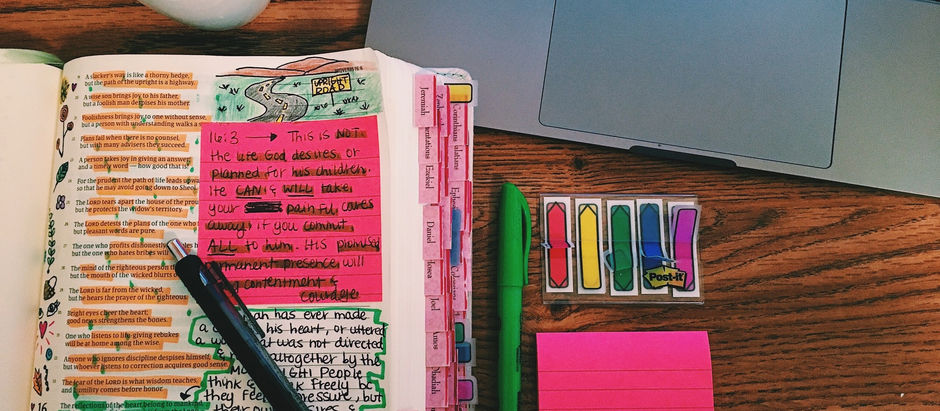 A slacker's way is like a thorny hedge,
but the path of the upright is a highway.
A wise son brings joy to his father,
but a foolish man despises his mother.
Foolishness brings joy to one without sense,
but a person with understanding walks a
Plans fail when there is no counsel,
but with many advisers they succeed.
A person takes joy in giving an answer;
and a timely word — how good that is
For the prudent the path of life leads
so that he may avoid going down to Sheol
The LORD tears apart the house of the
but he protects the widow's territory.
The LORD detests the plans of the one who
but pleasant words are pure.
The one who profits dishonestly
but the one who hates bribes
The mind of the righteous person
but the mouth of the wicked blurts
The LORD is far from the wicked,
but he hears the prayer of the righteous
Bright eyes cheer the heart;
good news strengthens the bones.
One who listens to life-giving rebukes
will be at home among the wise.
Anyone who ignores discipline despises himself,
but whoever listens to correction acquires good sense.
The fear of the LORD is what wisdom teaches,
and humility comes before honor.
16 The reflections of the heart belong to
UPRIGHT
ROAD
16:3 → This is NOT
the life God desires or
planned for his children.
He CAN & WILL take
your painful cares
away, if you commit
ALL to him. His promised
permanent presence will
contentment &
courage.
has ever made
his heart, or uttered
that was not directed
altogether by the
People
think freely
they feel pressure, but
Jeremiah
Ezekiel
Daniel
Hosea
Joel
Amos
Post-it